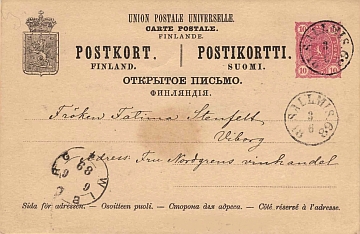 UNION POSTALE UNIVERSELLE.
CARTE POSTALE.
FINLANDE.
POSTKORT. | POSTIKORTTI.
FINLAND. SUOMI.
ОТКРЫТОЕ ПИСЬМО.
ФИНЛЯНДІЯ.
10 10
SALLMIS
3
SALLMIS
3
6
Fröken Fatima Stenfelt
Viborg
Adress: Fru Nordgrens vinhandel
WIBORG
Sida för adressen. - Osoitteen puoli. - Сторона для адреса. - Côté réservé à l'adresse.